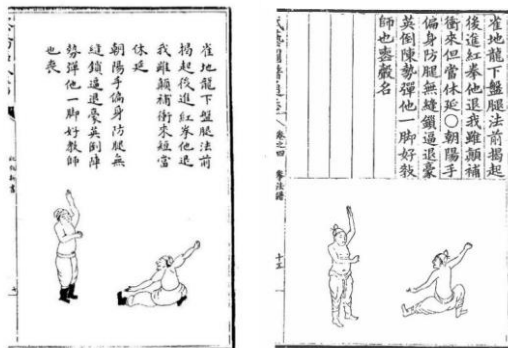 雀地龍下盤腿法前
揭起後進紅拳他退
我雖顛補衝來短當
休延
朝陽手偏身防腿無
縫鎖逼退豪英倒陣
勢彈他一脚好教師
也喪
雀地龍下盤腿法前揭起
後進紅拳他退我雖顛補
衝來但當休延○朝陽手
偏身防腿無縫鎖逼退豪
英倒陳勢彈他一脚好教
師也喪名
卷之四
十三